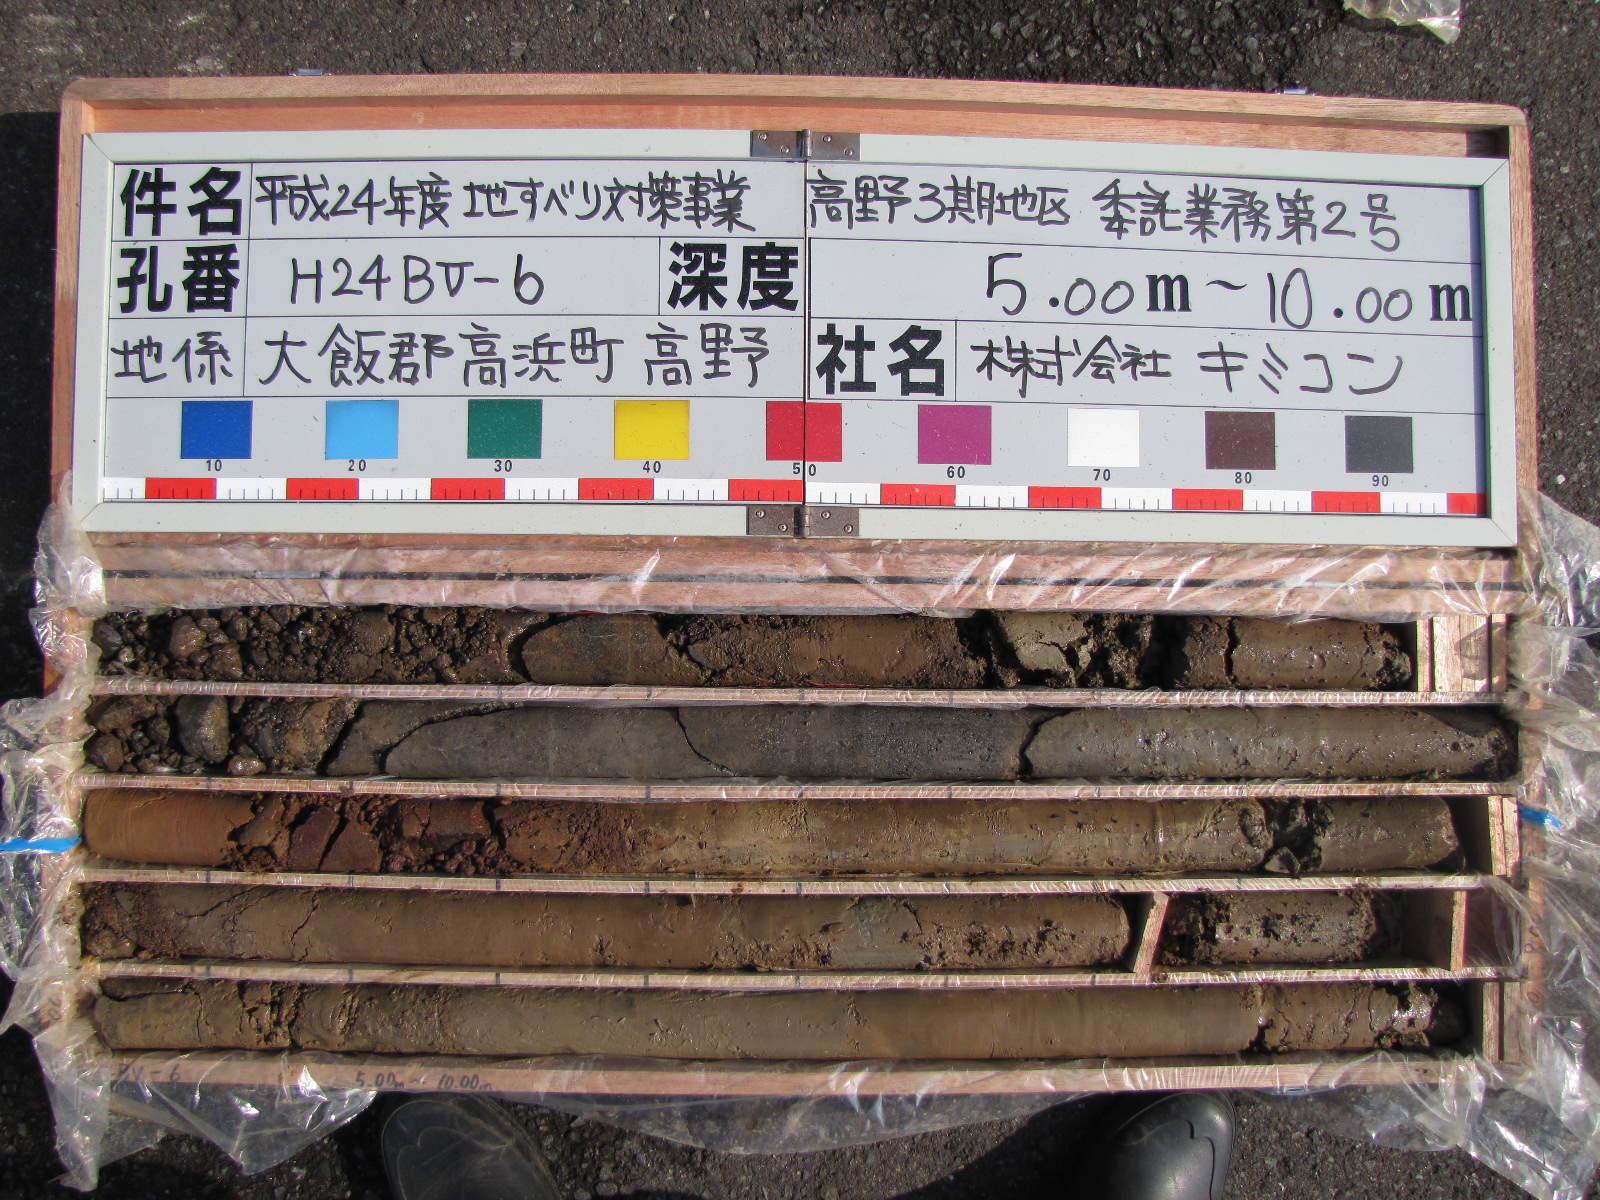 件名 平成24年度 地すべり対策事業 高野3期地区 委託業務第2号
孔番 H24BV-6 深度 5.00m~10.00m
地係 大飯郡高浜町 高野 社名 株式会社 キミコン
10 20 30 40 50 60 70 80 90
BV-6 5.00m~10.00m